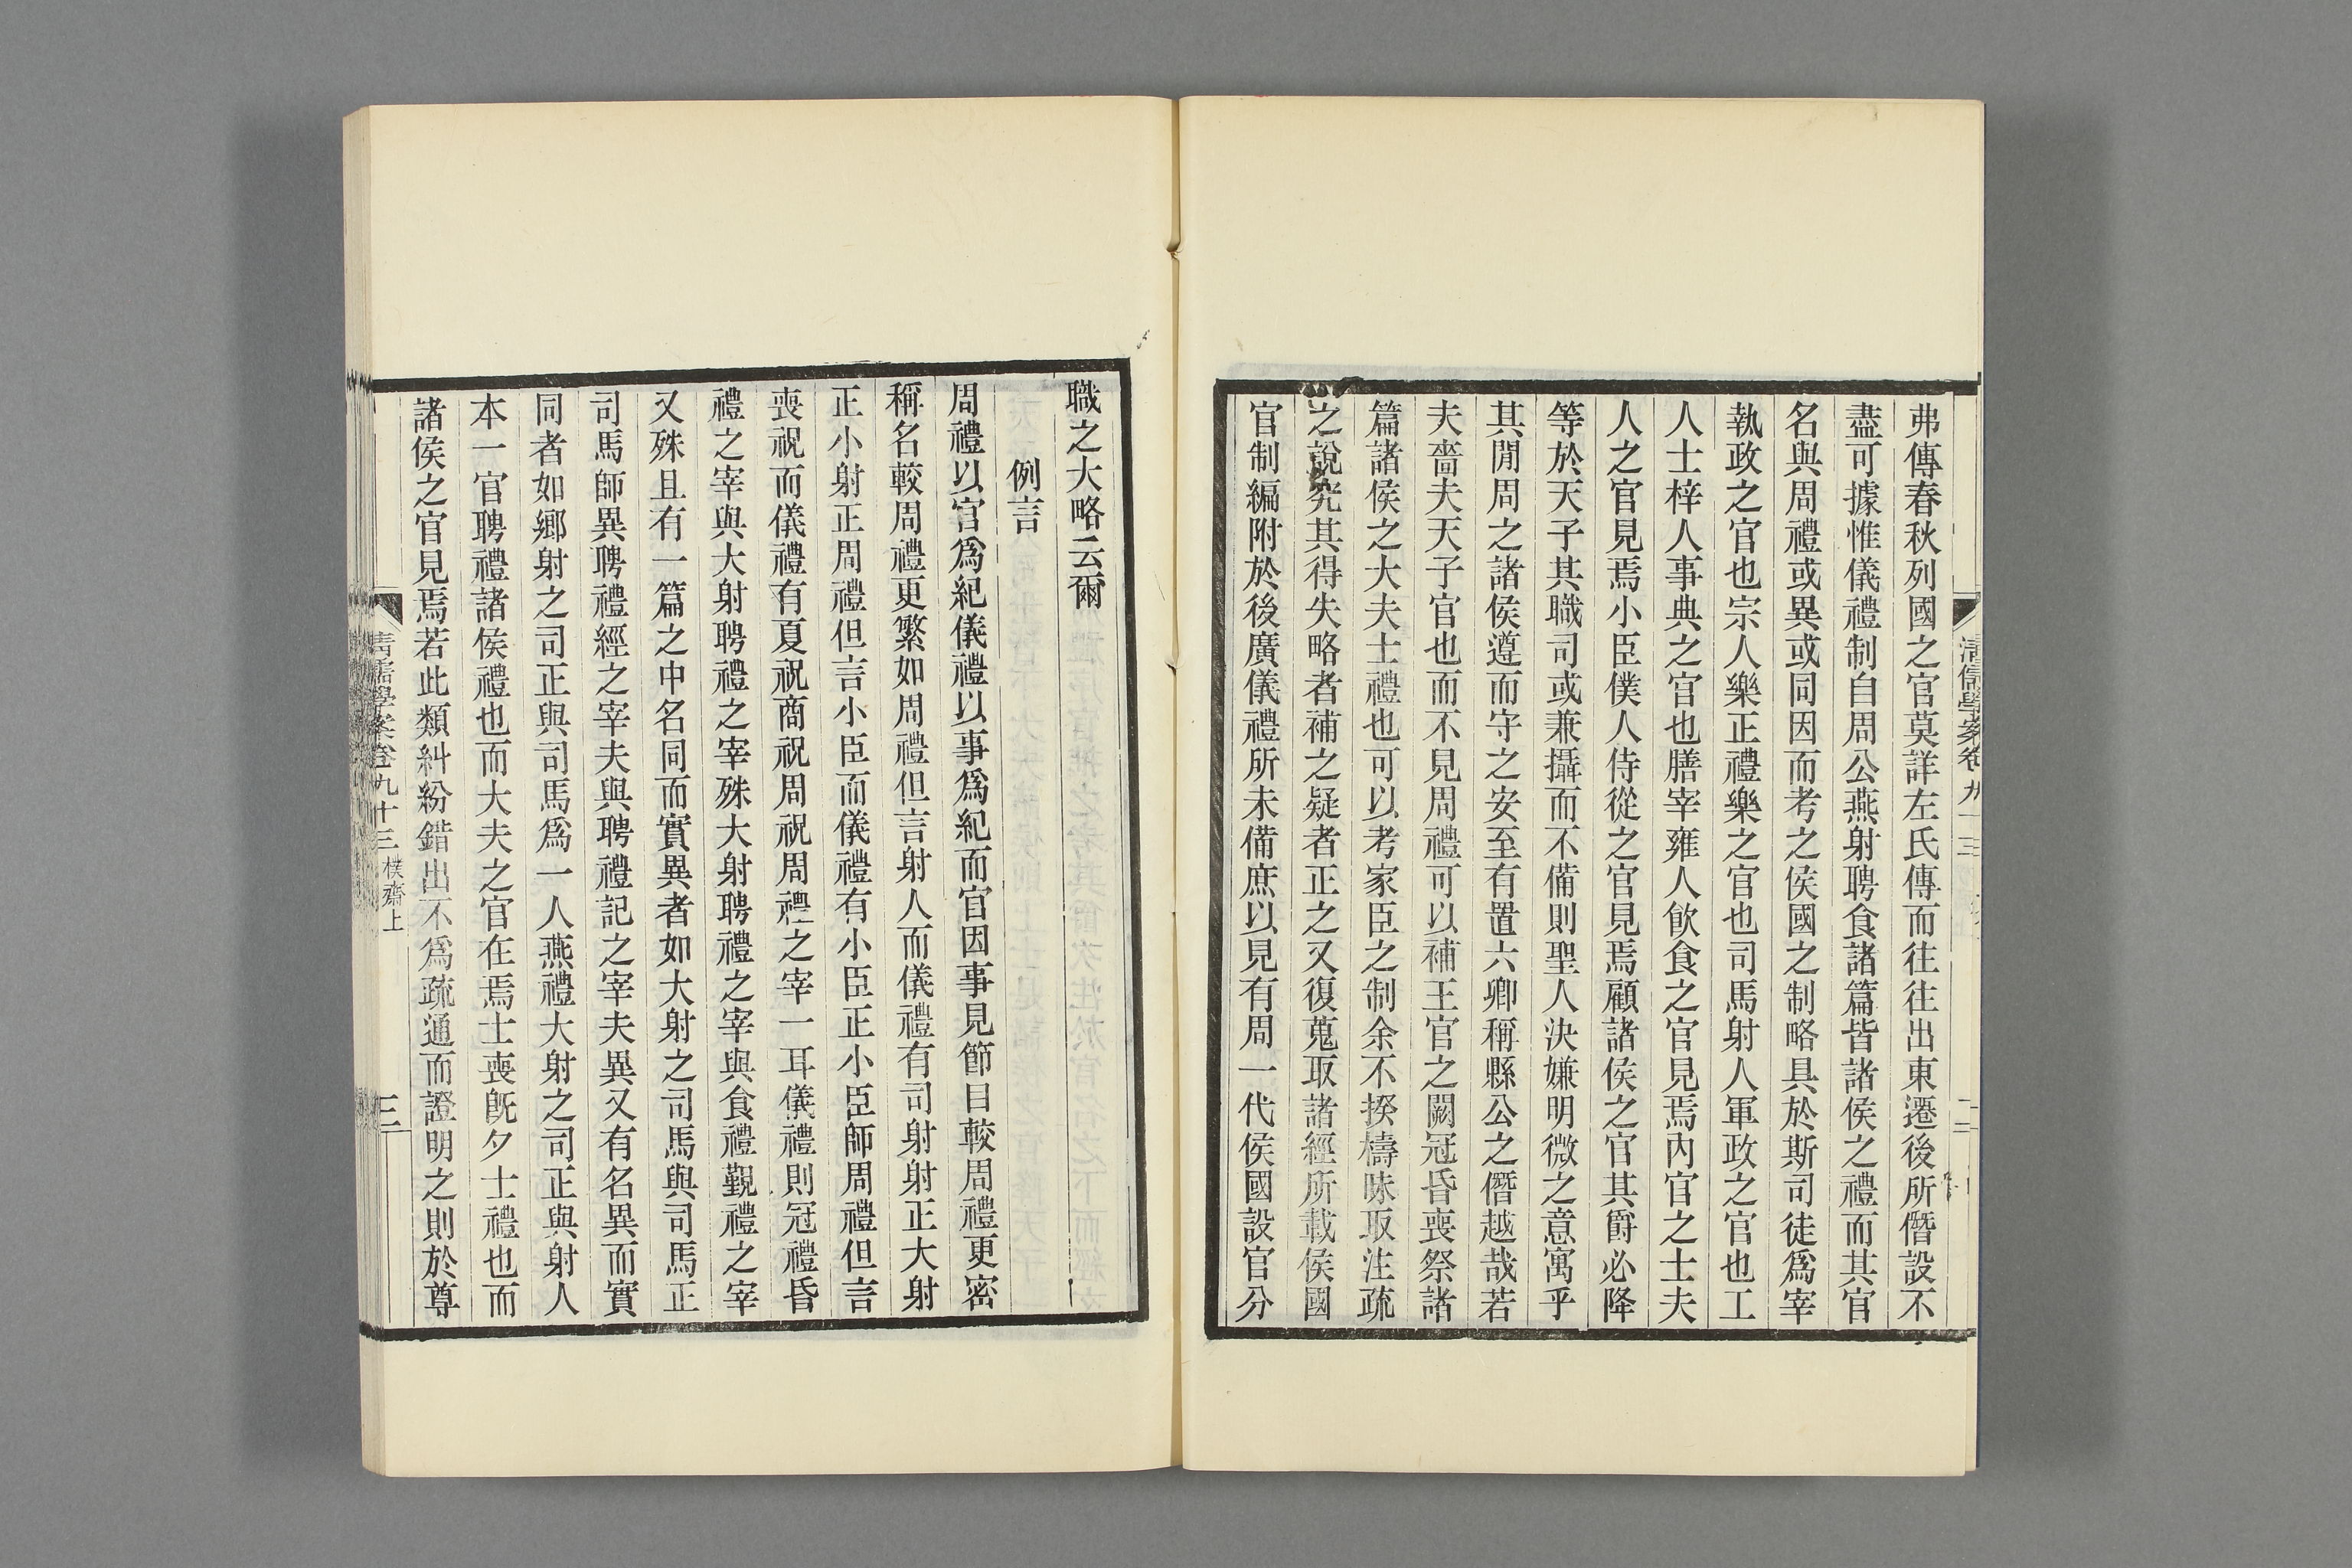 弗傳春秋列國之官莫詳左氏傳而往往出東遷後所僭設不
盡可據惟儀禮制自周公燕射聘食諸篇皆諸侯之禮而其官
名與周禮或異或同因而考之侯國之制略具於斯司徒爲宰
執政之官也宗人樂正禮樂之官也司馬射人軍政之官也工
人士梓人事典之官也膳宰雍人飮食之官見焉內官之士夫
人之官見焉小臣僕人侍從之官見焉顧諸侯之官其爵必降
等於天子其職司或兼攝而不備則聖人決嫌明微之意寓乎
其閒周之諸侯遵而守之安至有置六卿稱縣公之僭越哉若
夫嗇夫天子官也而不見周禮可以補王官之闕冠昏喪祭諸
篇諸侯之大夫士禮也可以考家臣之制余不揆檮昧取注疏
之說究其得失略者補之疑者正之又復蒐取諸經所載侯國
官制編附於後廣儀禮所未備庶以見有周一代侯國設官分
職之大略云爾
例言
周禮以官爲紀儀禮以事爲紀而官因事見節目較周禮更密
稱名較周禮更繁如周禮但言射人而儀禮有司射射正大射
正小射正周禮但言小臣而儀禮有小臣正小臣師周禮但言
喪祝而儀禮有夏祝商祝周祝周禮之宰一耳儀禮則冠禮昏
禮之宰與大射聘禮之宰殊大射聘禮之宰與食禮覲禮之宰
又殊且有一篇之中名同而實異者如大射之司馬與司馬正
司馬師異聘禮經之宰夫與聘禮記之宰夫異又有名異而實
同者如鄉射之司正與司馬爲一人燕禮大射之司正與射人
本一官聘禮諸侯禮也而大夫之官在焉士喪旣夕士禮也而
諸侯之官見焉若此類糾紛錯出不爲疏通而證明之則於尊
清儒學案卷九十三 樸齋上
三